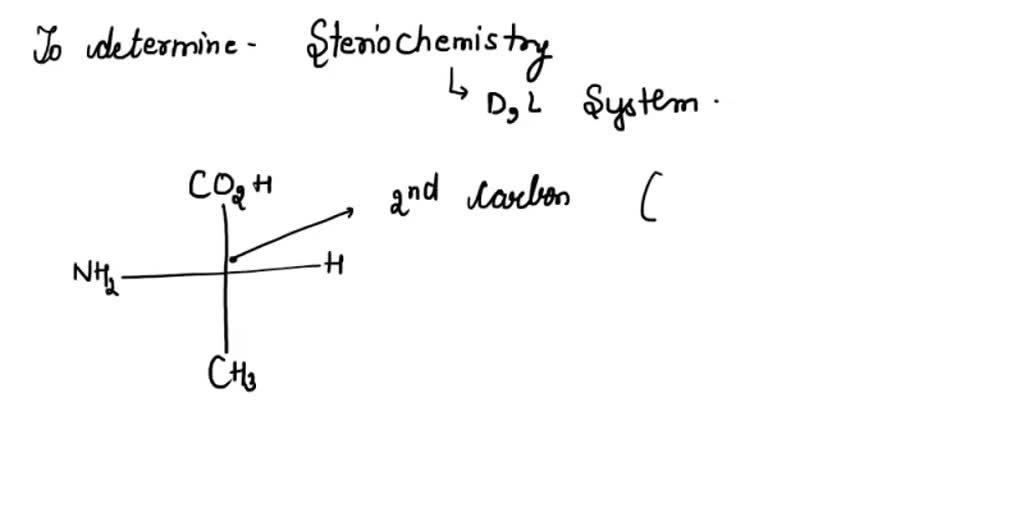 To determine - Steriochemistry
↳ D, L System.
CO2H
2nd carbon (
NH2 H
CH3